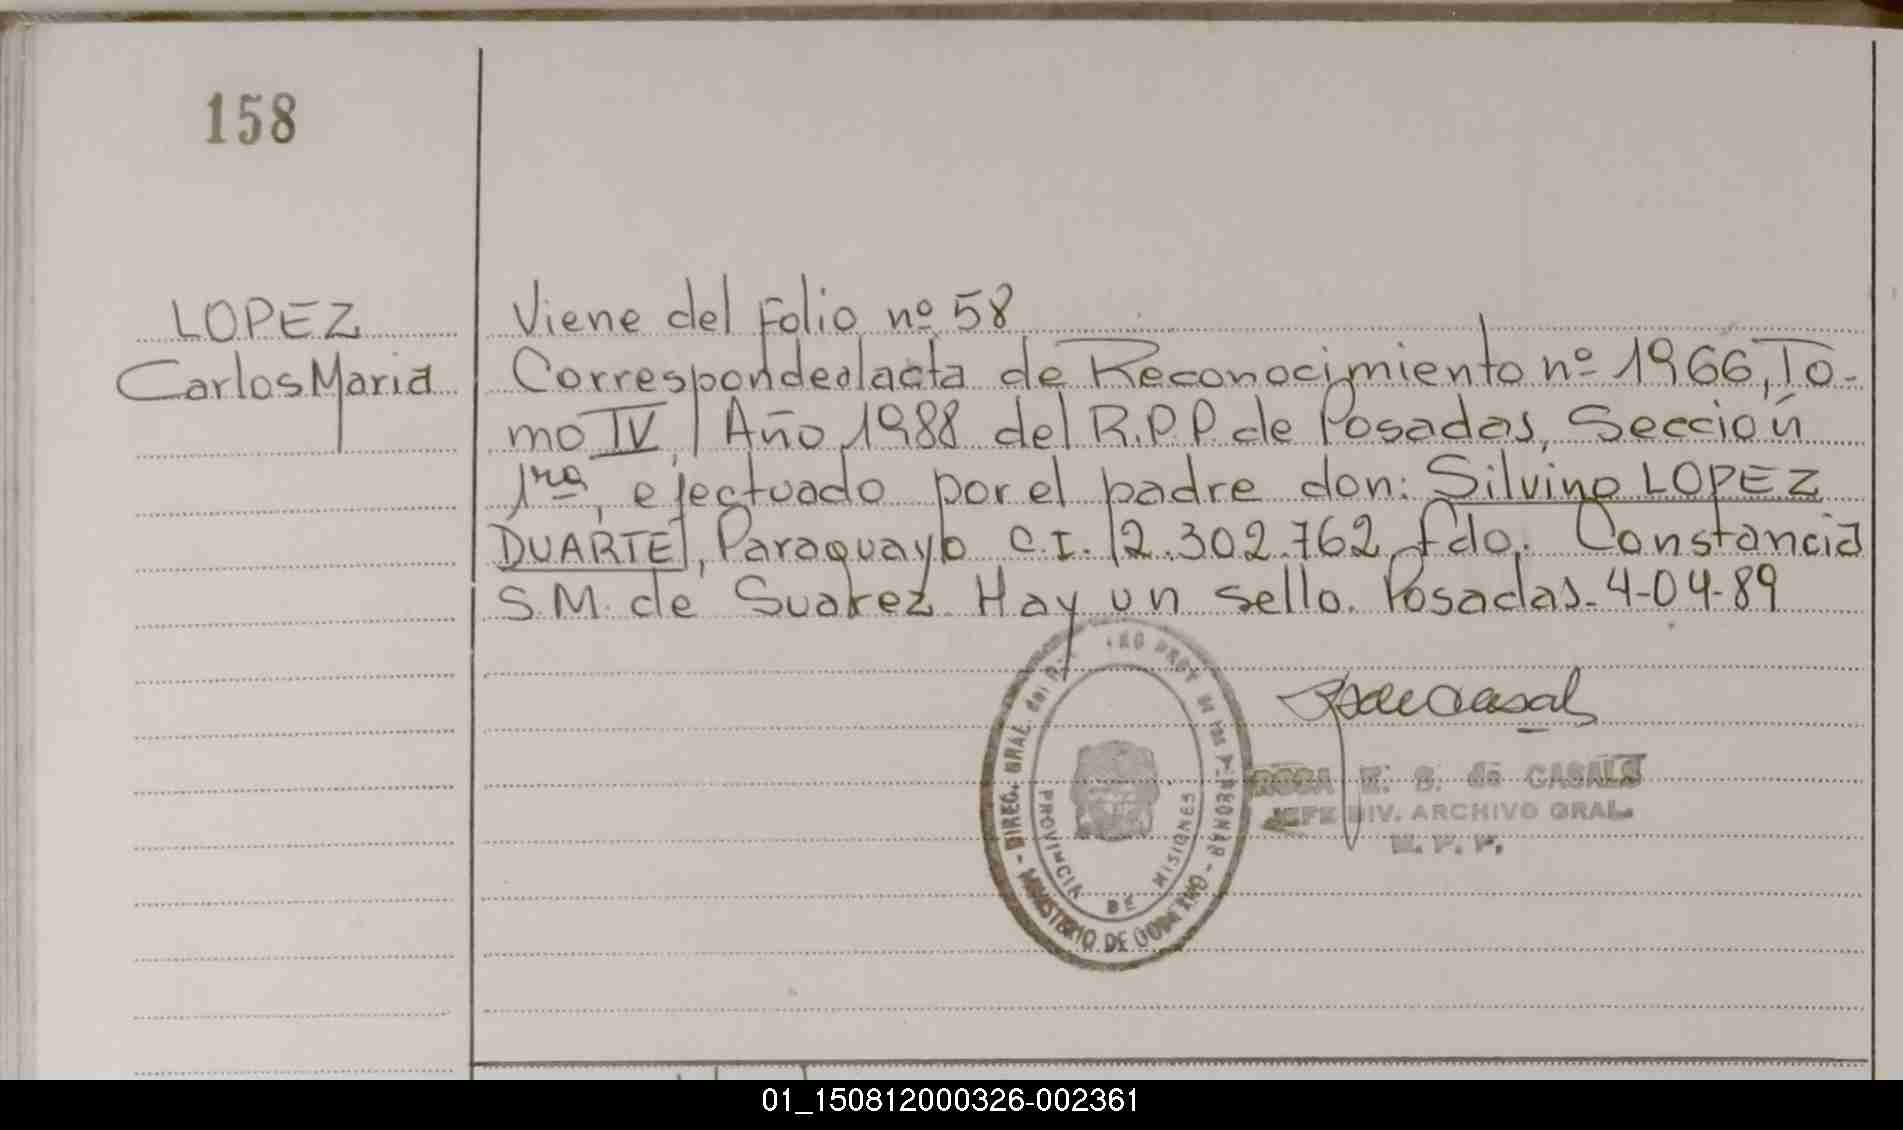 158
LOPEZ
Carlos Maria
Viene del Folio nº 58
Corresponde al acta de Reconocimiento nº 1966, To-
mo IV, Año 1988 del R.P.P. de Posadas, Sección
1ra, efectuado por el padre don: Silvino LOPEZ
DUARTE, Paraguayo C.I. 12.302.762 fdo. Constancia
S.M. de Suarez. Hay un sello. Posadas. 4-04-89
DIREC. GRAL del DE LAS PERSONAS
MINISTERIO DE GOBIERNO
PROVINCIA DE MISIONES
ROSA E. B. de CASALS
JEFE DIV. ARCHIVO GRAL.
R. P. P.
01_150812000326-002361